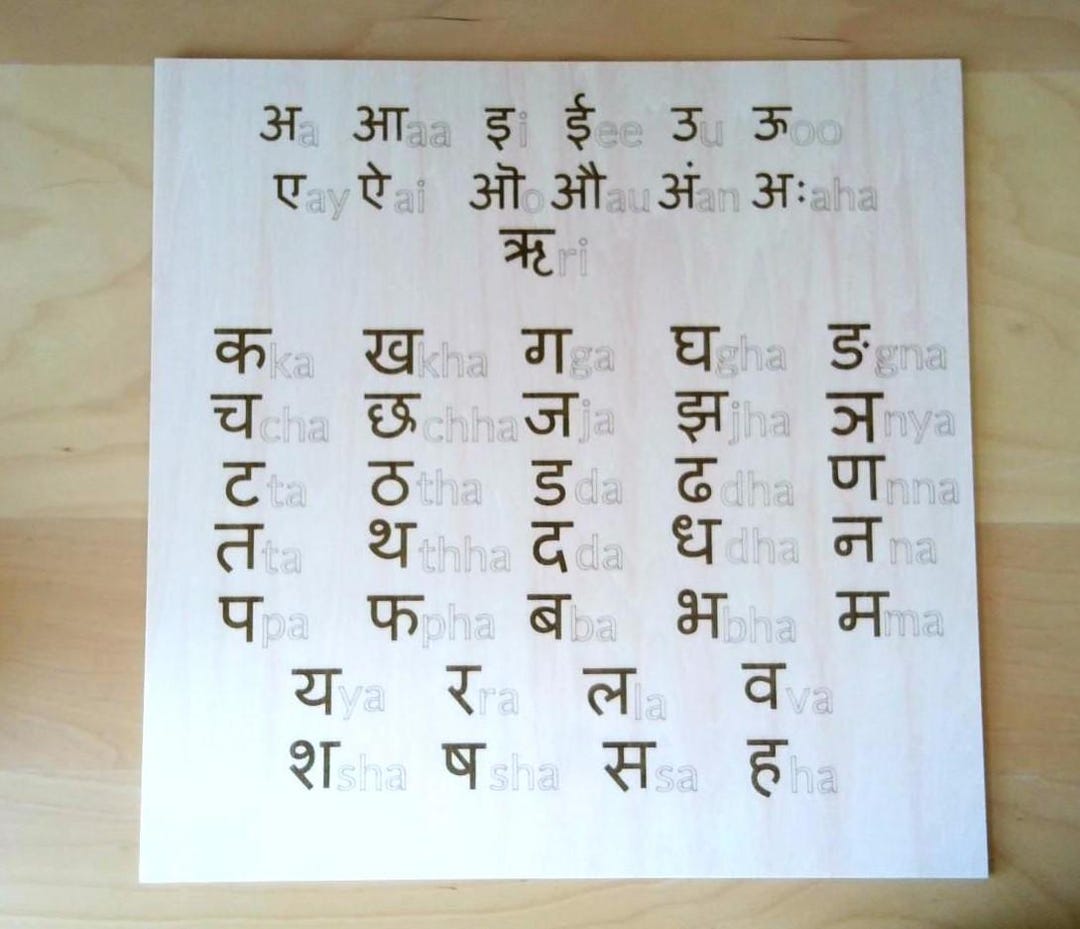 अ a आ aa इ i ई ee उ u ऊ oo
ए ay ऐ ai ऒ o औ au अं an अः aha
ऋ ri
क ka ख kha ग ga घ gha ङ gna
च cha छ chha ज ja झ jha ञ nya
ट ta ठ tha ड da ढ dha ण nna
त ta थ thha द da ध dha न na
प pa फ pha ब ba भ bha म ma
य ya र ra ल la व va
श sha ष sha स sa ह ha